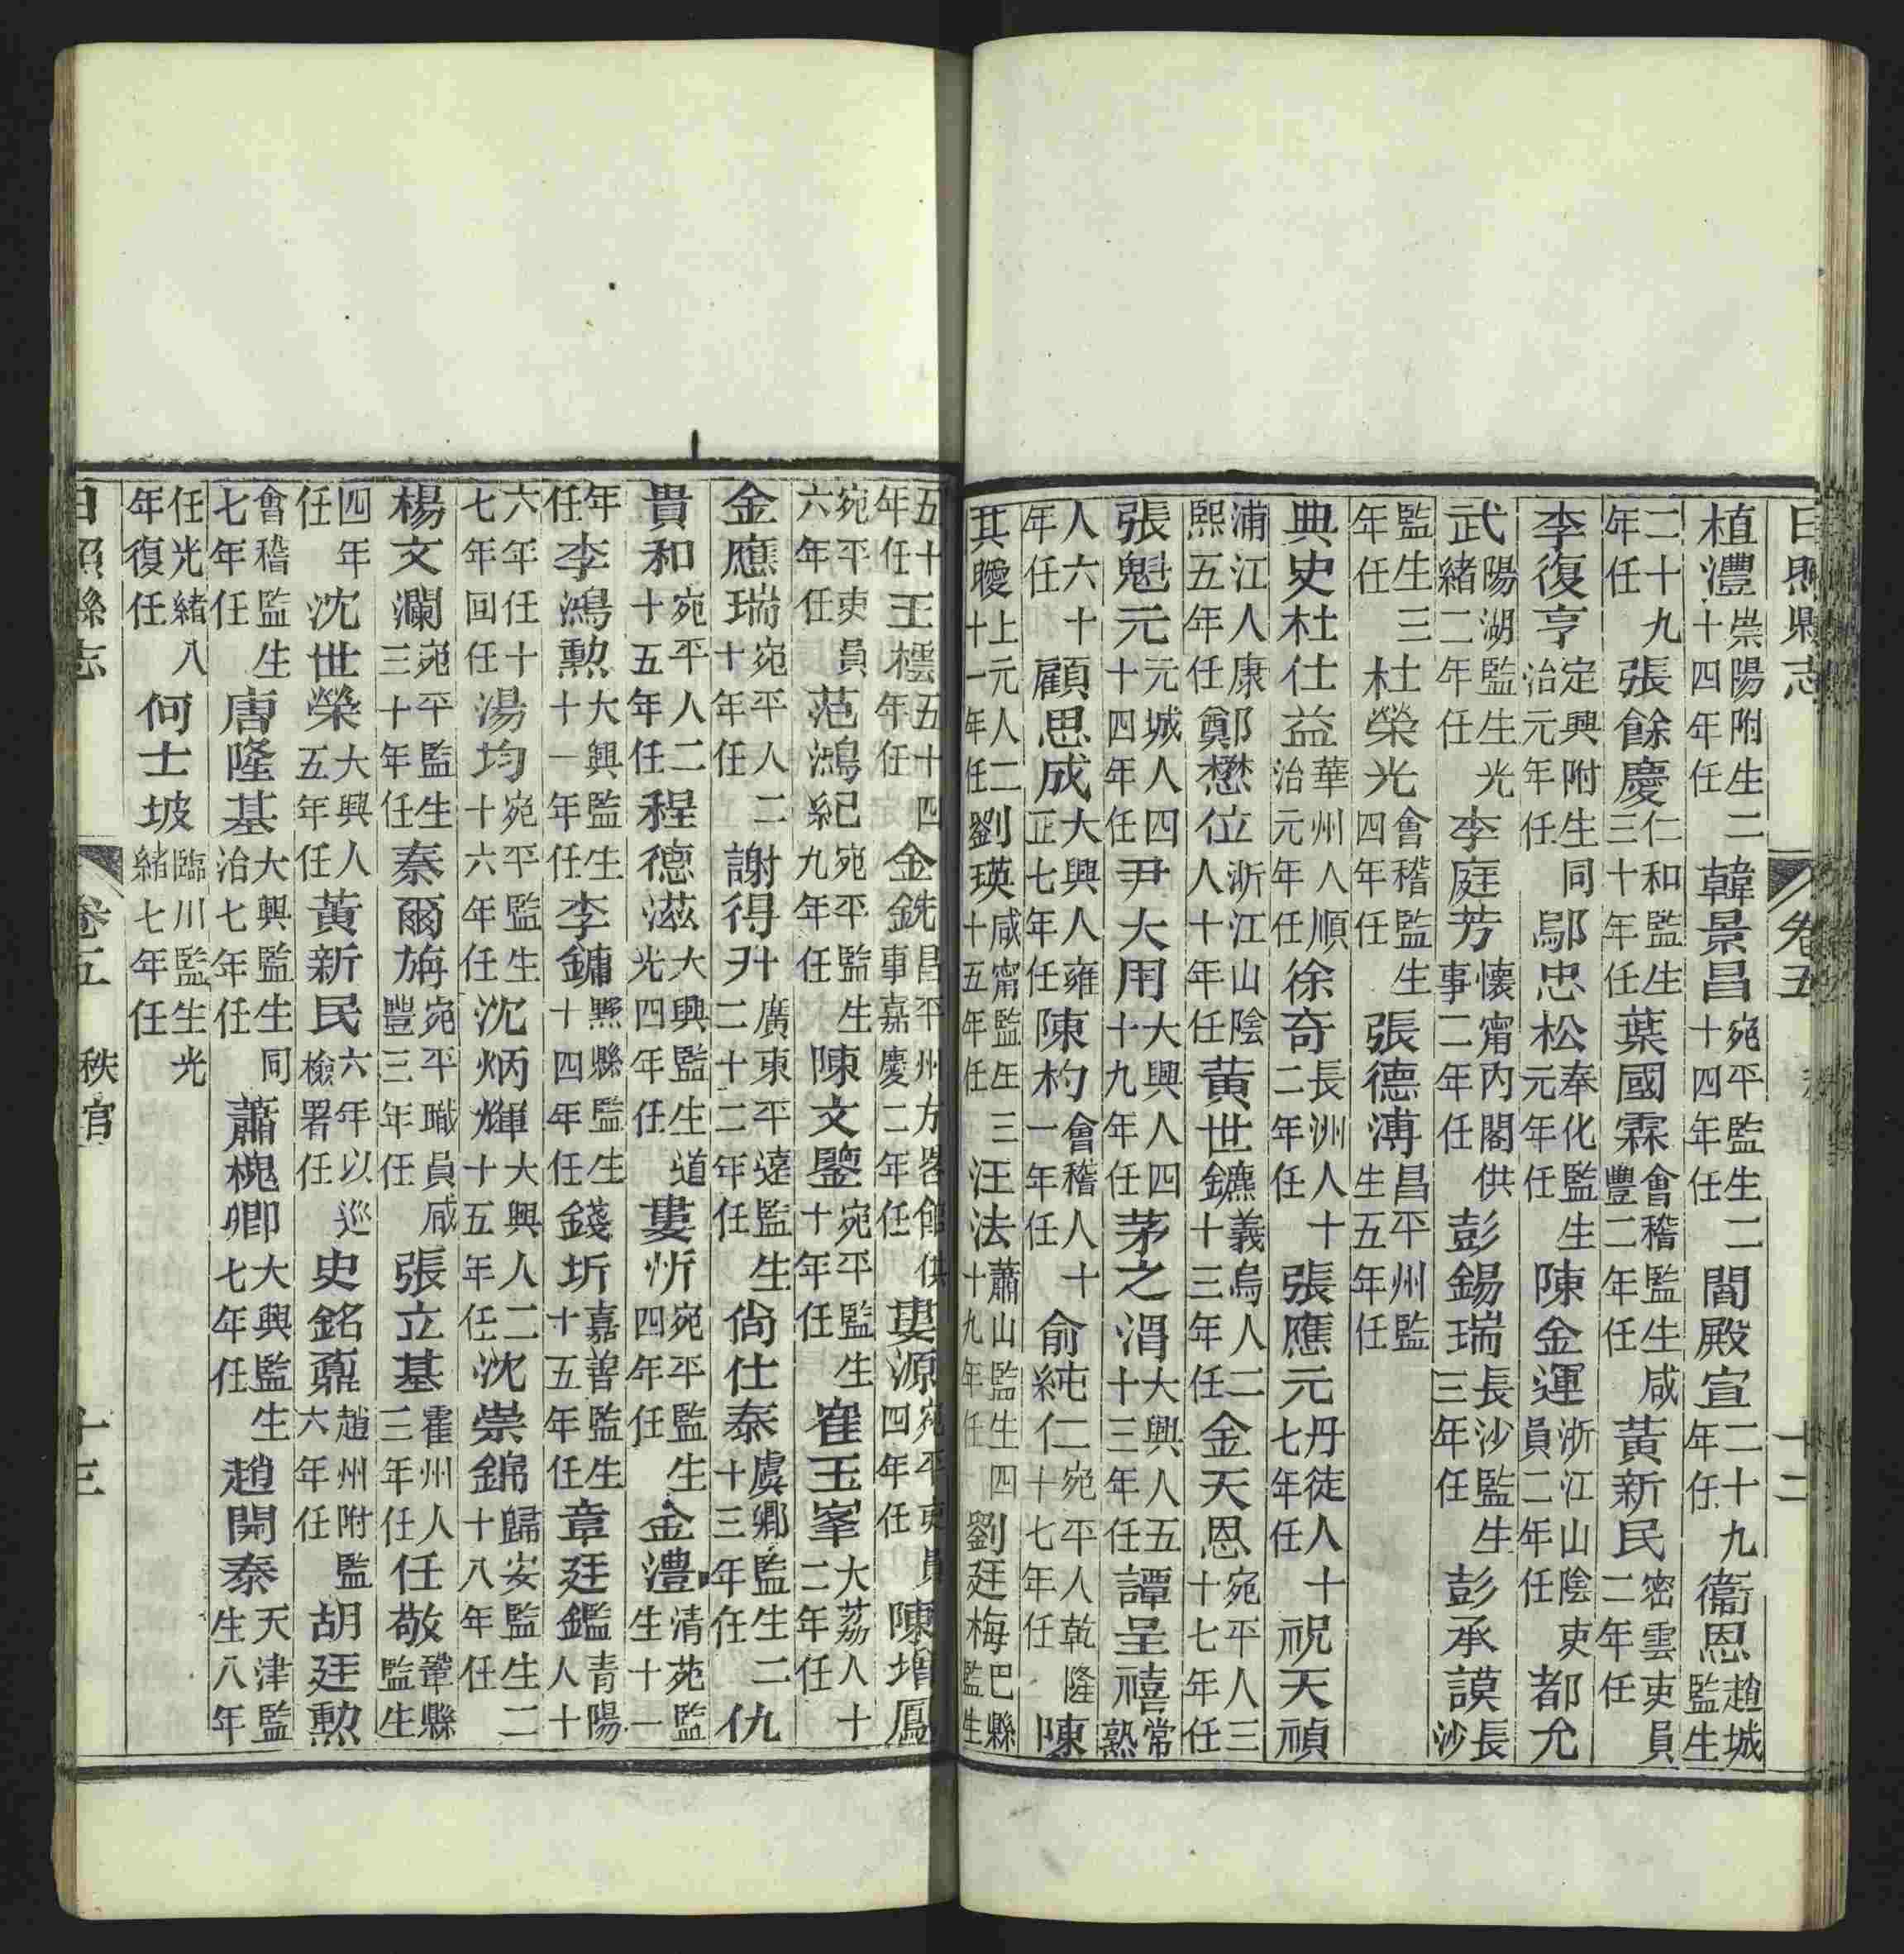 日照縣志 卷五 十二
植灃崇陽附生二十四年任韓景昌宛平監生二十四年任閻殿宣二十九年任衞恩趙城監生
二十九年任張餘慶仁和監生三十年任葉國霖會稽監生咸豐二年任黃新民密雲吏員二年任
李復亨定興附生同治元年任鄔忠松奉化監生元年任陳金運浙江山陰吏員二年任都允
武陽湖監生光緒二年任李庭芳懷甯內閣供事二年任彭錫瑞長沙監生三年任彭承謨長沙
監生三年任杜榮光會稽監生四年任張德溥昌平州監生五年任
典史杜仕益華州人順治元年任徐奇長洲人十二年任張應元丹徒人十七年任祝天禎
浦江人康熙五年任鄭懋位浙江山陰人十年任黃世鑣義烏人二十三年任金天恩宛平人三十七年任
張魁元元城人四十四年任尹大用大興人四十九年任茅之滑大興人五十三年任譚呈禧常熟
人六十年任顧思成大興人雍正七年任陳杓會稽人十一年任俞仁宛平人乾隆十七年任陳
其曖上元人二十一年任劉瑛咸甯監生三十五年任汪法蕭山監生四十九年任劉廷梅巴縣監生
五十年任王五十四年任金銑昌平州方畧館供事嘉慶二年任婁源宛平吏員四年任陳堦鳳
宛平吏員六年任范鴻紀宛平監生九年任陳文鑒宛平監生十年任崔玉峯大荔人十二年任
金應瑞宛平人二十年任謝得升廣東平遠監生二十二年任尙仕泰虞鄉監生二十三年任仇
貴和宛平人二十五年任程德滋大興監生道光四年任婁忻宛平監生四年任金澧清苑監生十一
年任李鴻勲大興監生十一年任李鏞黟縣監生十四年任錢圻嘉善監生十五年任章廷鑑青陽人十
六年任十七年回任湯均宛平監生十六年任沈炳輝大興人二十五年任沈崇錦歸安監生二十八年任
楊文瀾宛平監生三十年任秦爾旃宛平職員咸豐三年任張立基霍州人三年任任敬鞏縣監生
四年任沈世榮大興人五年任黃新民六年以巡檢署任史銘鼐趙州附監六年任胡廷勲
會稽監生七年任唐隆基大興監生同治七年任蕭槐卿大興監生七年任趙開泰天津監生八年
任光緒八年復任何士坡臨川監生光緒七年任
日照縣志 卷五 秩官 十三